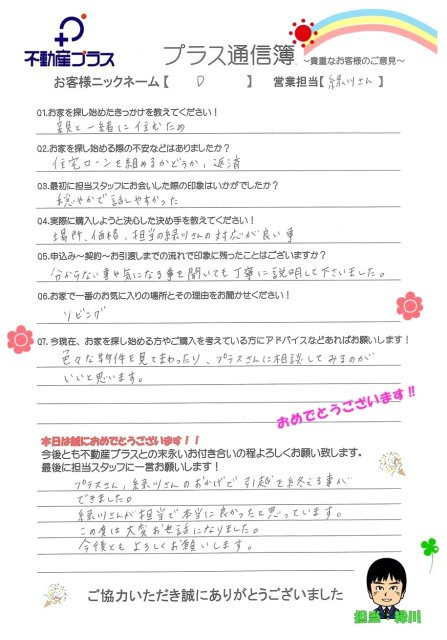 不動産プラス
プラス通信簿 ～貴重なお客様のご意見～
お客様ニックネーム【 D 】 営業担当【 緑川さん 】
Q1.お家を探し始めたきっかけを教えてください!
親と一緒に住むため
Q2.お家を探し始める際の不安などはありましたか?
住宅ローンを組めるかどうか、返済
Q3.最初に担当スタッフにお会いした際の印象はいかがでしたか?
穏やかで話しやすかった
Q4.実際に購入しようと決心した決め手を教えてください!
場所、価格、担当の緑川さんの対応が良い事
Q5.申込み～契約～お引渡しまでの流れで印象に残ったことはございますか?
分からない事や気になる事を聞いても丁寧に説明して下さいました。
Q6.お家で一番のお気に入りの場所とその理由をお聞かせください!
リビング
Q7.今現在、お家を探し始める方やご購入を考えている方にアドバイスなどあればお願いします!
色々な物件を見てまわったり、プラスさんに相談してみるのが
いいと思います。
おめでとうございます!!
本日は誠におめでとうございます!!
今後とも不動産プラスとの末永いお付き合いの程よろしくお願い致します。
最後に担当スタッフに一言お願いします!
プラスさん、緑川さんのおかげで引越を終える事が
できました。
緑川さんが担当で本当に良かったと思っています。
この度は大変お世話になりました。
今後ともよろしくお願いします。
ご協力いただき誠にありがとうございました
担当 緑川